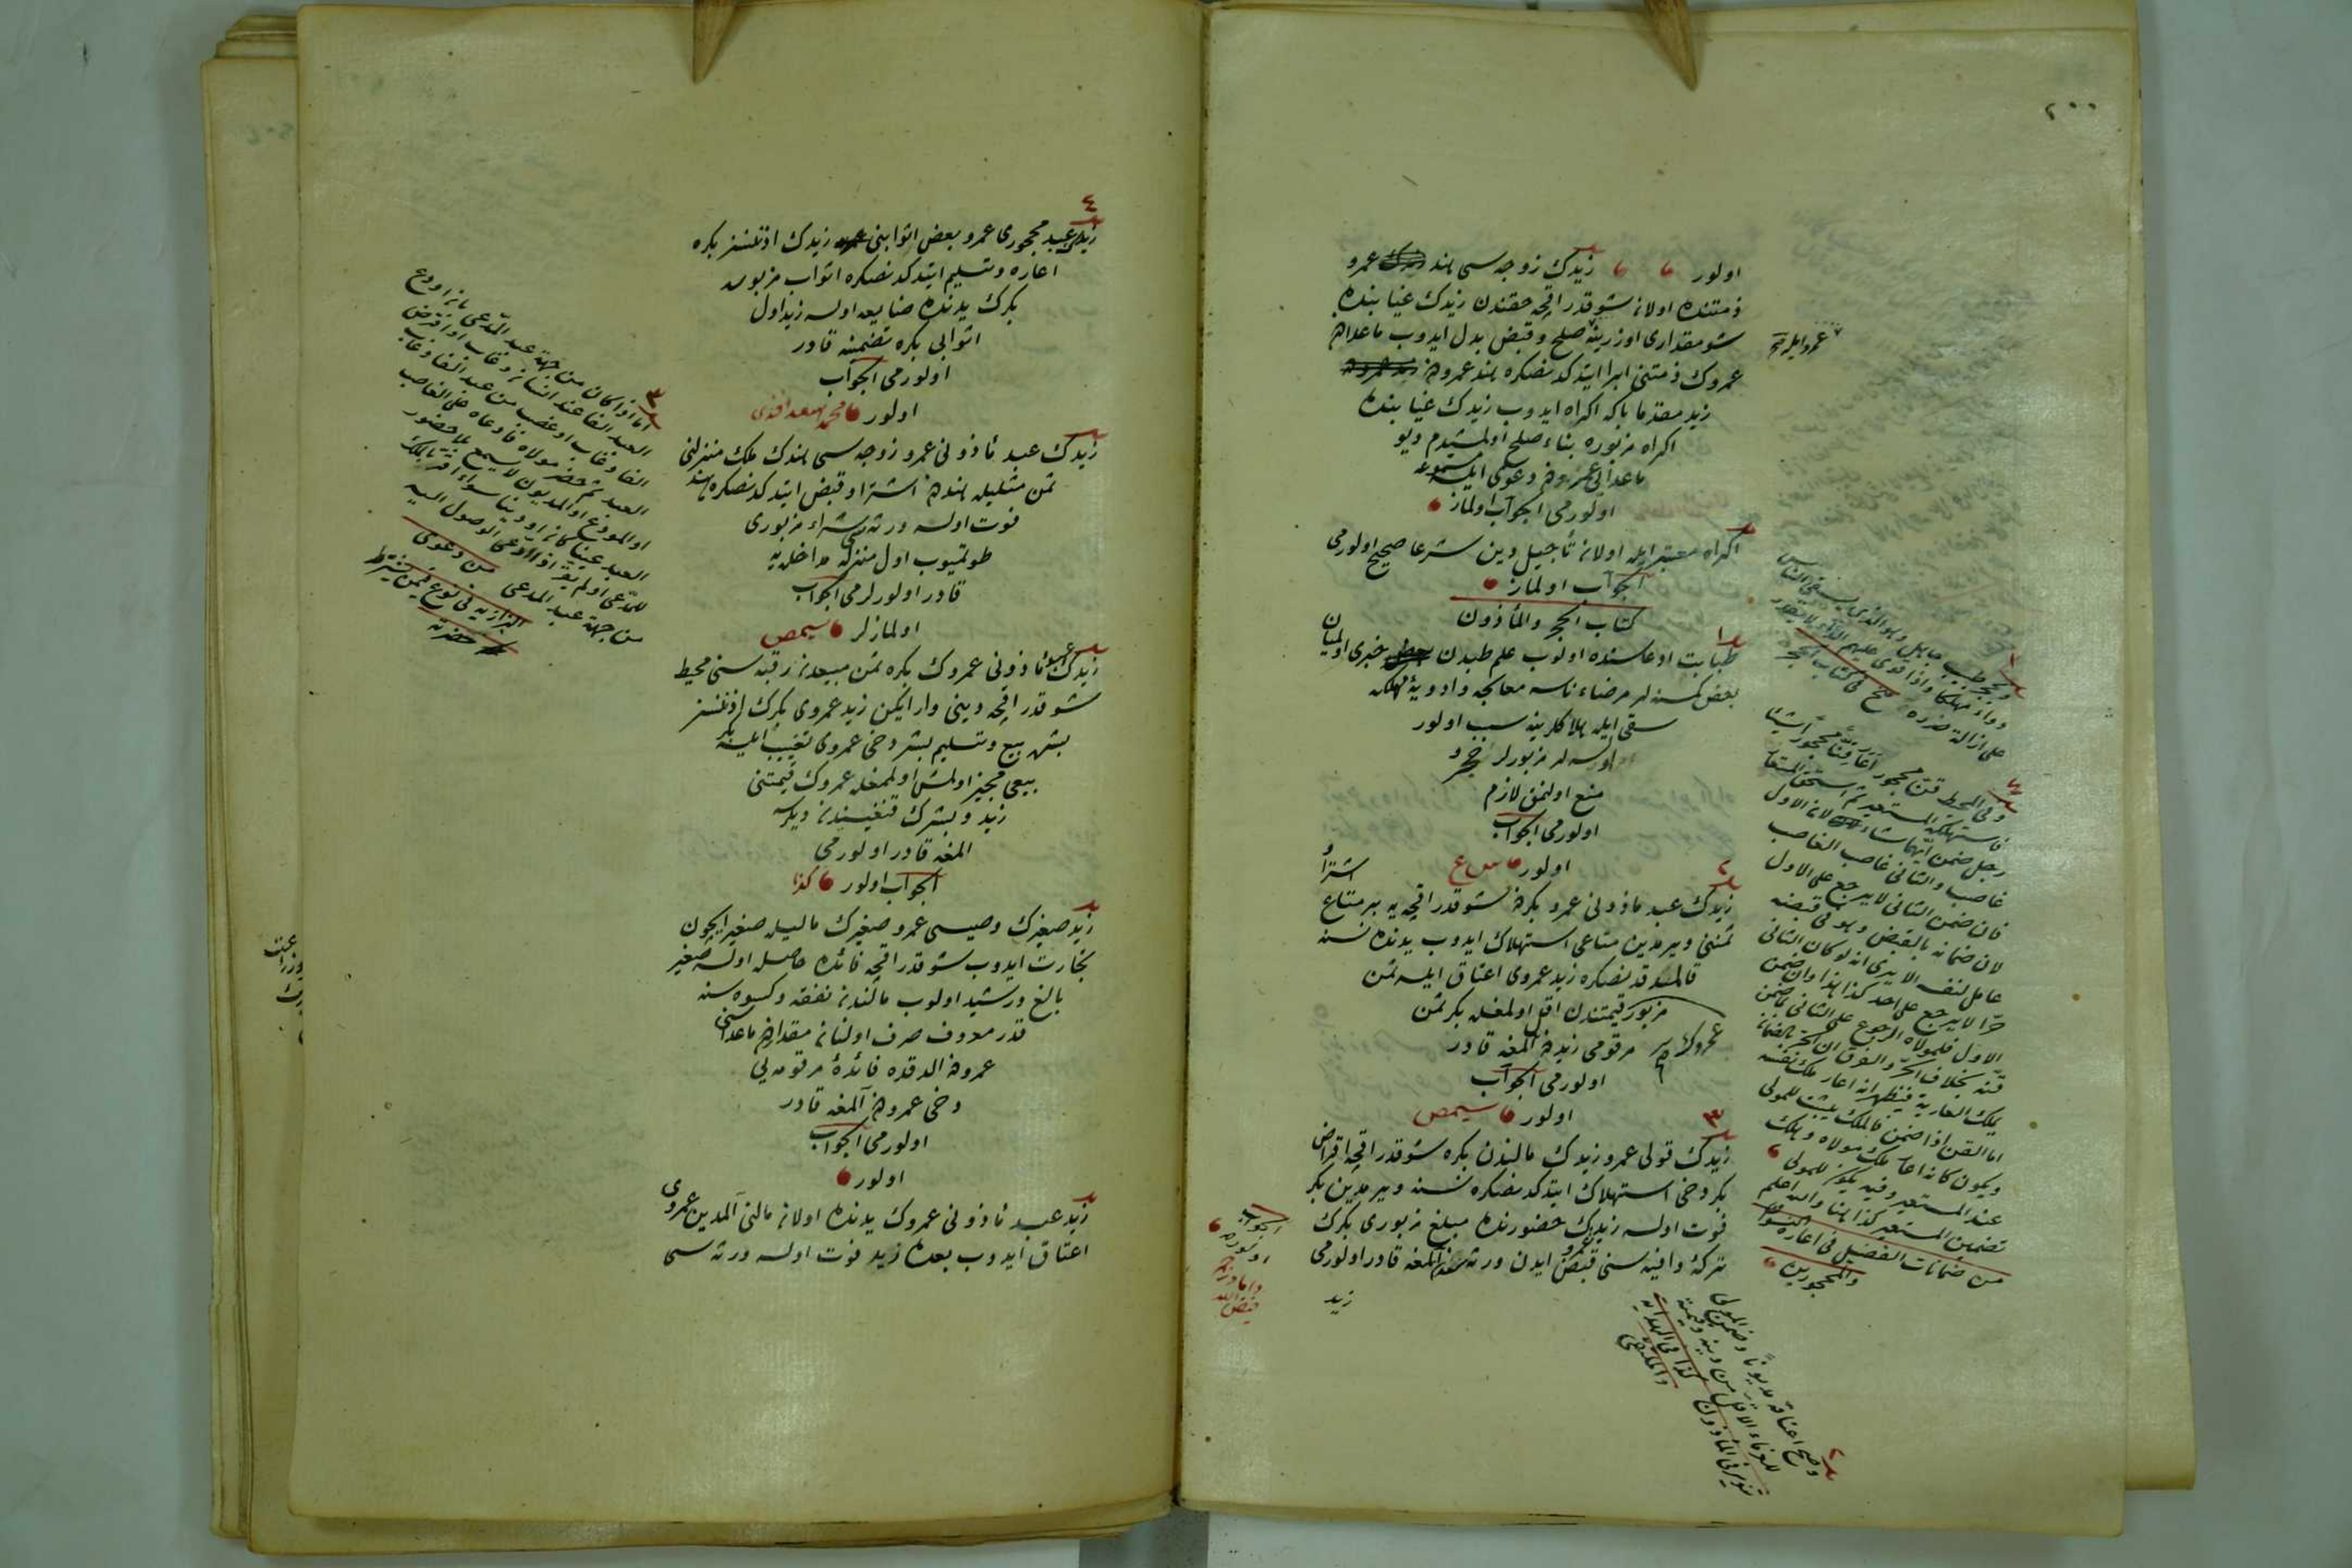 ٢٠٠
اولور زيدك زوجه سى هند عمرو
ذمتنده اولان شو قدر اقچه حقندن زيدك غيابنده
شو مقدارى اوزرينه صلح و قبض بدل ايدوب ماعداهم
عمروك ذمتنى ابرا ايتدكدنصكره هند عمرودن
زيد مقدما بكا اكراه ايدوب زيدك غيابنده
اكراه مزبوره بناء صلح اولمشيدم ديو
ماعدايى عمرودن دعوى ايلسه مسموعه
اولورمى الجواب اولماز
اكراه معتبر ايله اولان تأجيل دين شرعا صحيح اولورمى
الجواب اولماز
كتاب الحجر والمأذون
طبابت ادعاسنده اولوب علم طبدن خبرى اولميان
بعض كمسنه لر مرضاء ناسه معالجه و ادويۀ مهلكه
سقى ايله هلاكلرينه سبب اولور
اولسه لر مزبورلر حجر و
منع اولنمق لازم
اولورمى الجواب
اولور
زيدك عبد مأذونى عمرو بكردن شو قدر اقچه يه بر متاع اشترا و
ثمننى ويرمدين متاعى استهلاك ايدوب يدنده نسنه
قالمدقدنصكره زيد عمروى اعتاق ايلسه ثمن
مزبور قيمتندن اقل اولمغله بكر ثمن
مرقومى زيددن المغه قادر
اولورمى الجواب
اولور
زيدك قولى عمرو زيدك مالندن بكره شو قدر اقچه اقراض
بكر دخى استهلاك ايتدكدنصكره نسنه ويرمدين بكر
فوت اولسه زيد بكرك حضورنده مبلغ مزبورى بكرك
تركۀ وافيه سنى قبض ايدن ورثه سندن المغه قادر اولورمى
زيد
الجواب
اولور
ويحجر طبيب جاهل وهو الذى يسقى الناس
دواء مهلكا واذا قوى عليهم الداء لا يقدر
على ازالة ضرره فى كتاب الحجر
وفى المحيط قن محجور اعار قنا محجورا شيئا
فاستهلكه المستعير ثم استحق المستعار
رجل ضمن ايهما شاء لان الاول
غاصب والثانى غاصب الغاصب
فان ضمن الثانى لا يرجع على الاول
لان ضمانه بالقبض وهو فى قبضه
عامل لنفسه الا يرى انه لو كان الثانى
حرا لا يرجع على احد كذا هذا وان ضمن
الاول فلمولاه الرجوع على الثانى بما ضمن
قنه بخلاف الحر والفرق ان الحر بالضمان
يملك العارية فيظهر انه اعار ملك نفسه
اما القن اذا ضمن فالملك يثبت للمولى
ويكون كانه اعار ملك مولاه وهلك
عند المستعير وفيه يكون للمولى
تضمين المستعير كذا هنا والله اعلم
من ضمانات الفضيل فى اعارة
والمحجورين
وصح اعتاقه مديونا وضمن المولى
للغرماء الاقل من دينه وقيمته
تنوير فى المأذون كذا فى الهداية
والملتقى
زيدك عبد محجورى عمرو بعض اثوابنى زيدك اذنسز بكره
اعاره و تسليم ايتدكدنصكره اثواب مزبور
بكرك يدنده ضايع اولسه زيد اول
اثوابى بكره تضمينه قادر
اولورمى الجواب
اولور محمد اسعد افندى
زيدك عبد مأذونى عمرو زوجه سى هندك ملك منزلنى
ثمن مثليله هنددن اشترا و قبض ايتدكدنصكره هند
فوت اولسه ورثه سى شراء مزبورى
طوتميوب اول منزله مداخله يه
قادر اولورلرمى الجواب
اولمازلر
زيدك عبد مأذونى عمروك بكره ثمن مبيعدن رقبه سنى محيط
شو قدر اقچه دينى وار ايكن زيد عمروى بكرك اذنسز
بشره بيع و تسليم بشر دخى عمروى تغييب ايلسه بكر
بيعى مجيز اولمش اولمغله عمروك قيمتنى
زيد و بشرك قنغيسندن ديلرسه
المغه قادر اولورمى
الجواب اولور كذا
زيد صغيرك وصيسى عمرو صغيرك ماليله صغير ايچون
تجارت ايدوب شو قدر اقچه فائده حاصله اولسه صغير
بالغ و رشيد اولوب مالندن نفقه و كسوه سنه
قدر معروف صرف اولنان مقداردن ماعداسنى
عمرودن الدقده فائدۀ مرقومه يى
دخى عمرودن المغه قادر
اولورمى الجواب
اولور
زيد عبد مأذونى عمروك يدنده اولان مالنى المدين عمروى
اعتاق ايدوب بعده زيد فوت اولسه ورثه سى
اما اذا كان من جهة عبد المدعى بان اودع
العبد الفا عند انسان وغاب او اقرض
الفا وغاب او غصب من عبد الفا وغاب
العبد ثم حضر مولاه فادعاه على الغاصب
او المودع او المديون لا يسمع بلا حضور
العبد عينا كان او دينا سواء اقر بالملك
للمدعى او لم يقر اذا ادعى الوصول اليه
من جهة عبد المدعى من دعوى
البزازيه فى نوع فيمن يشترط
حضرته